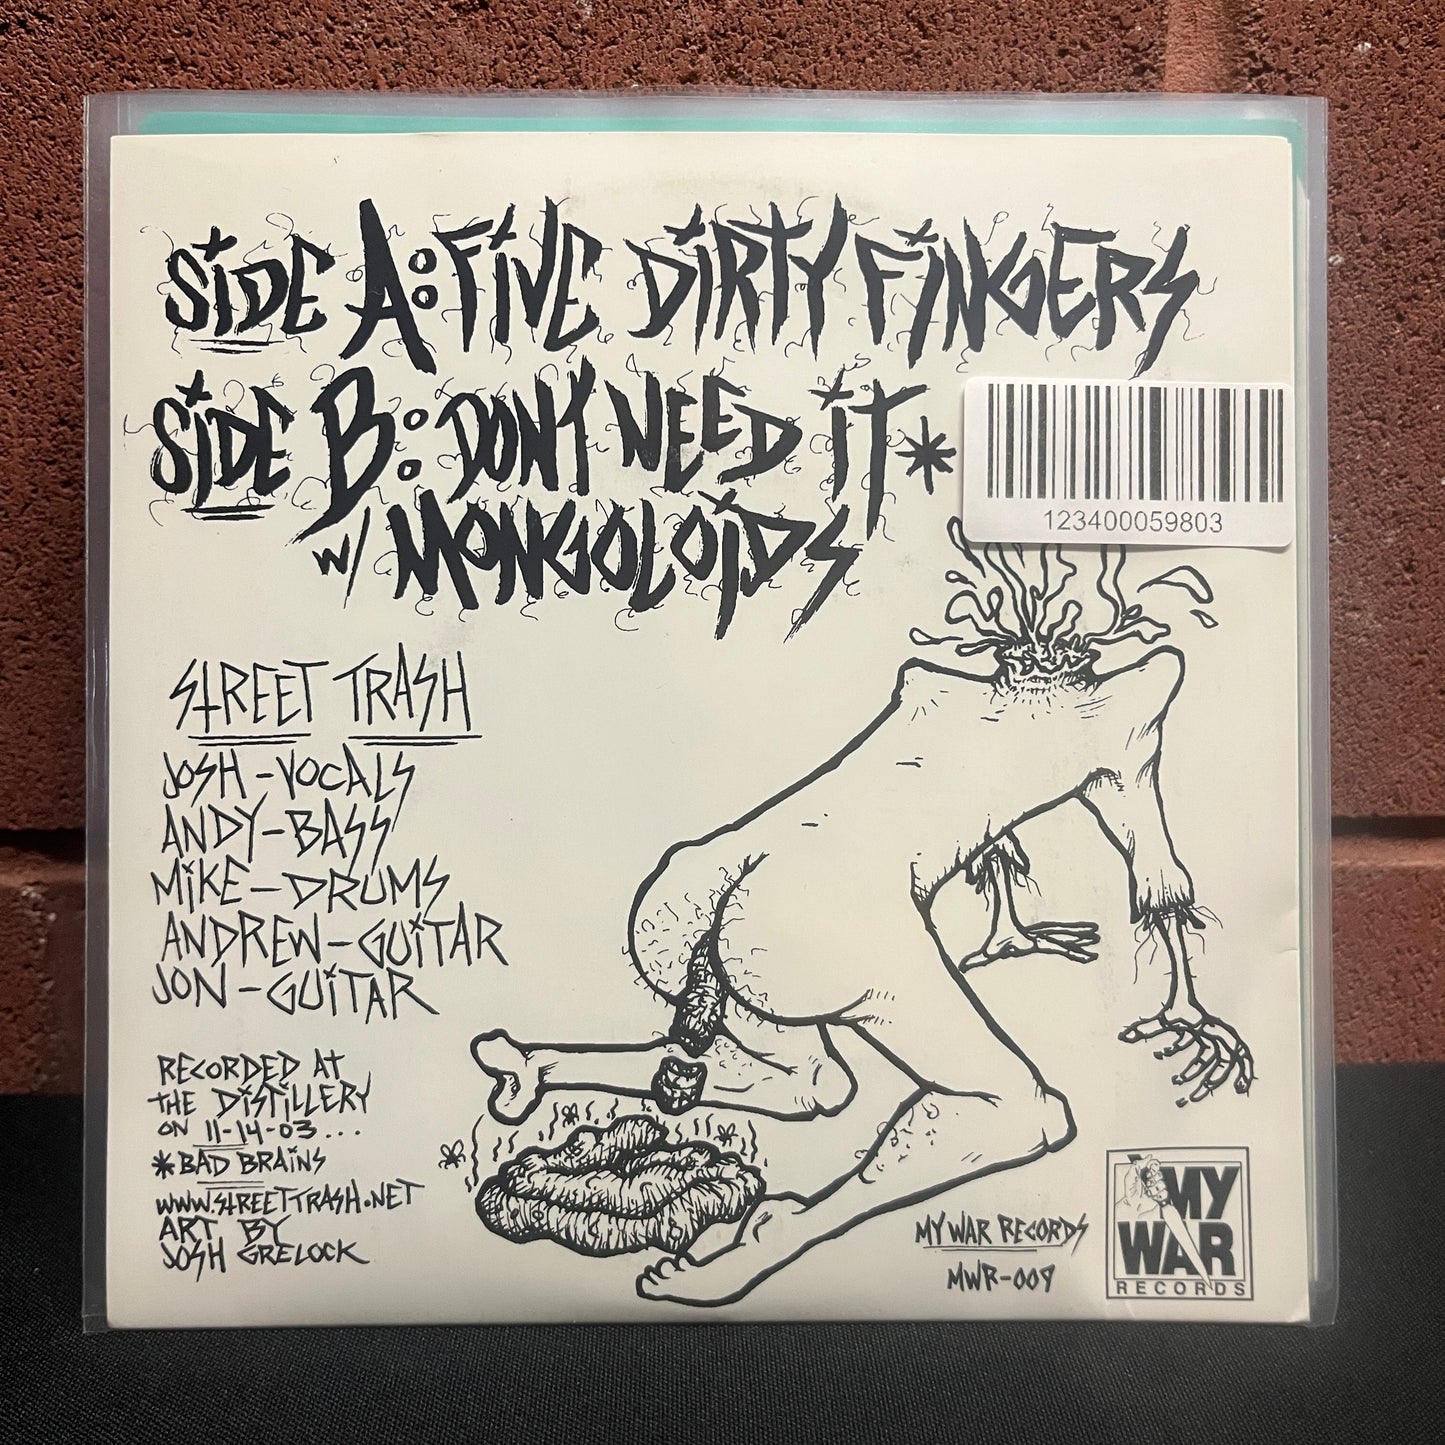 SIDE A: FIVE DIRTY FINGERS
SIDE B: DON'T NEED IT*
W/ MONGOLOIDS
123400059803
STREET TRASH
JOSH - VOCALS
ANDY - BASS
MIKE - DRUMS
ANDREW - GUITAR
JON - GUITAR
RECORDED AT
THE DISTILLERY
ON 11-14-03...
*BAD BRAINS
WWW.STREETTRASH.NET
ART BY
JOSH GRELOCK
MY WAR RECORDS
MWR-009
MY
WAR
RECORDS